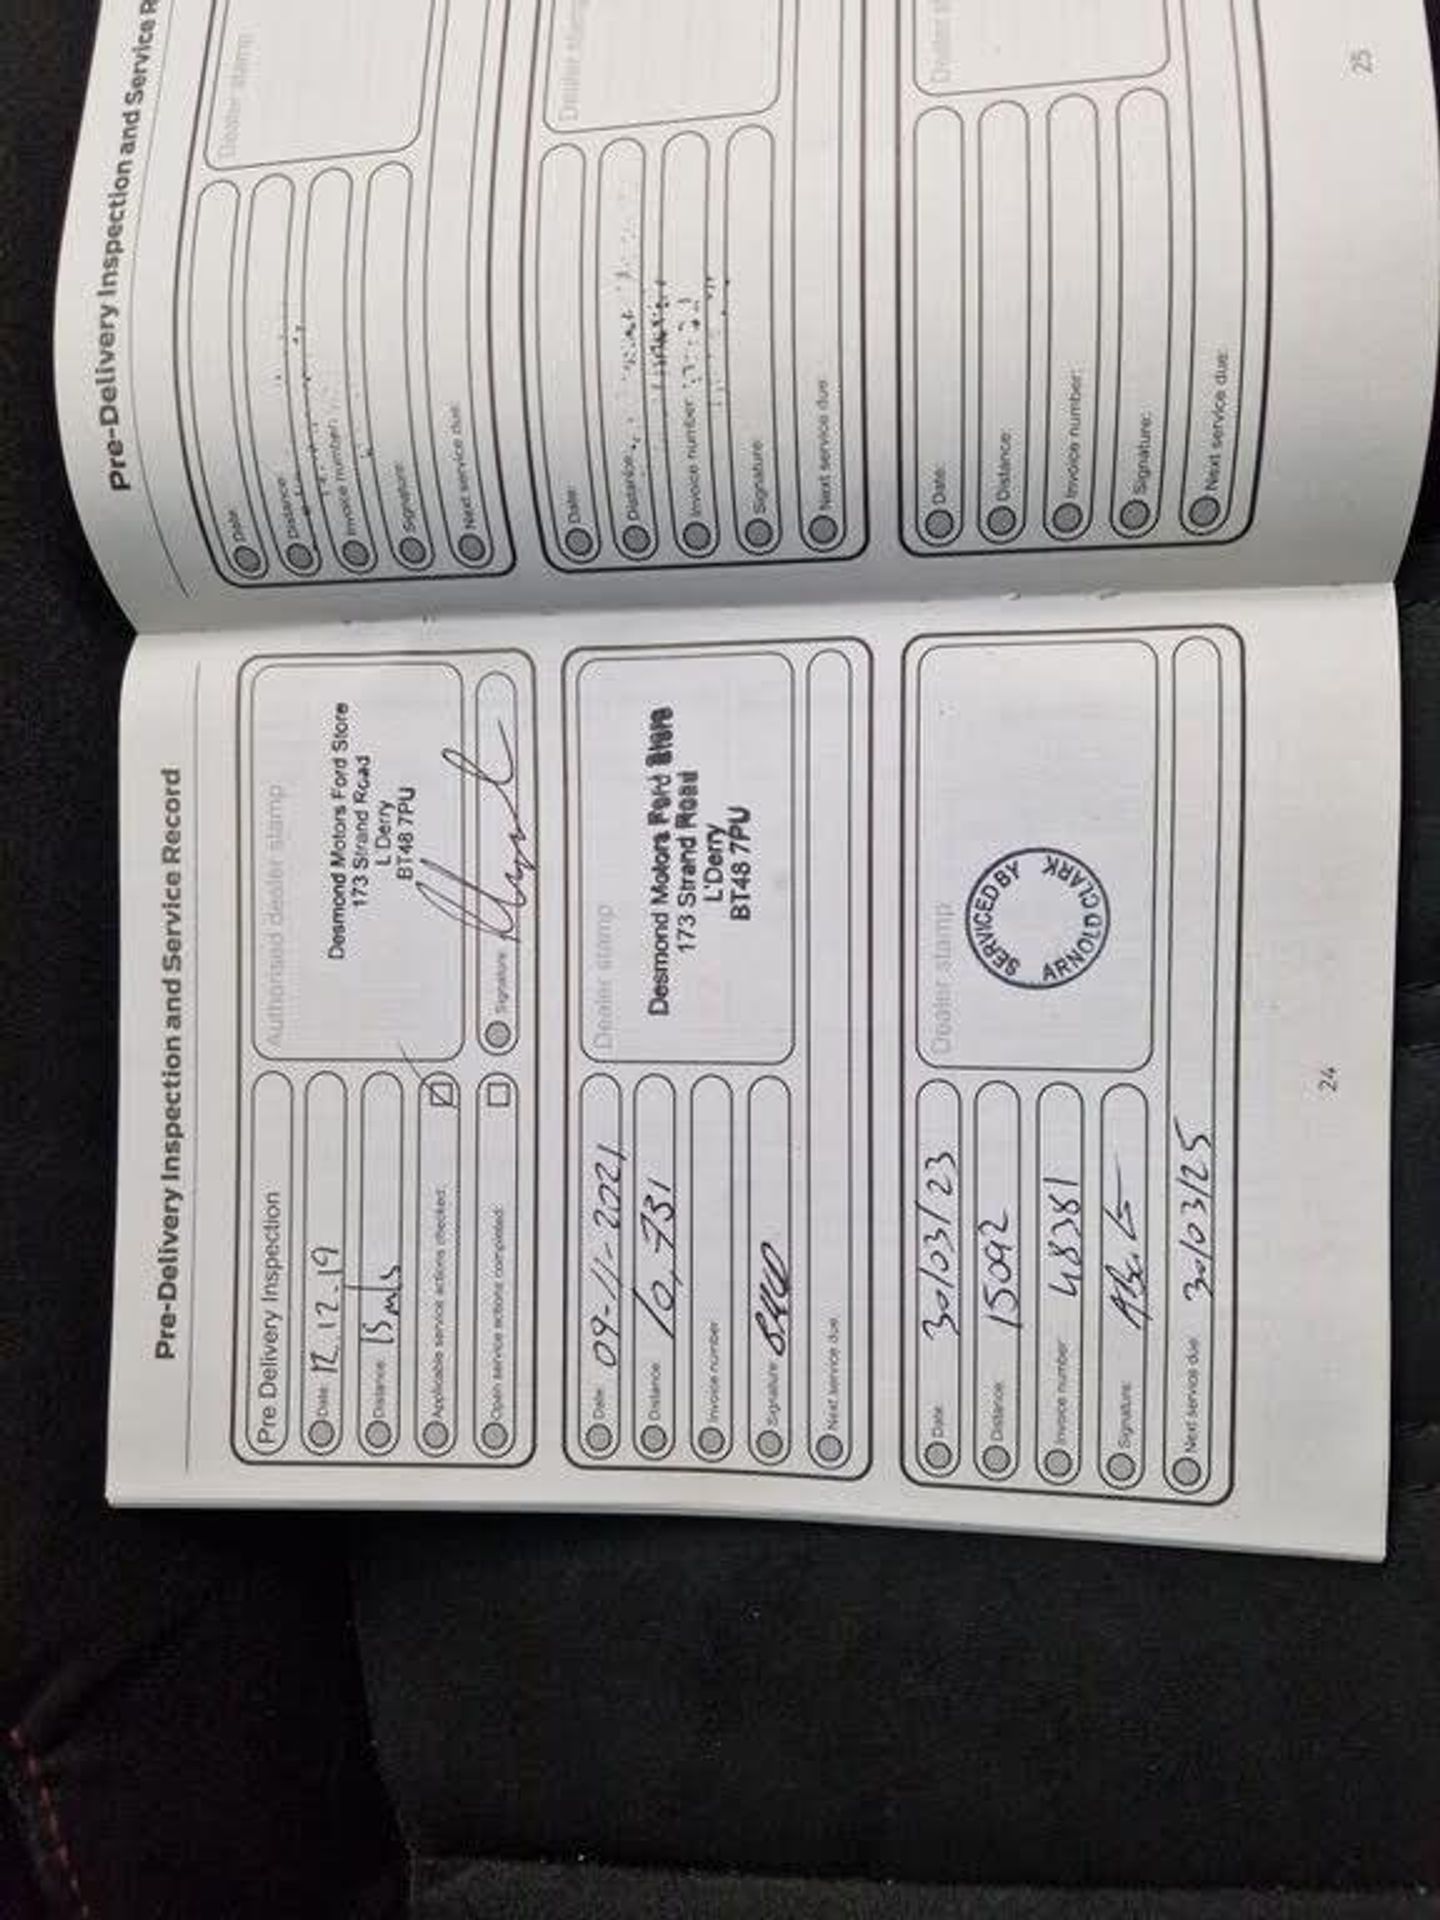 Pre-Delivery Inspection and Service Record
Pre Delivery Inspection
Date: 12.12.19
Distance: 15 mls
Applicable service actions checked:
Open service actions completed:
Authorised dealer stamp
Desmond Motors Ford Store
173 Strand Road
L'Derry
BT48 7PU
Signature
Date: 09-11-2021
Distance: 10,731
Invoice number
Signature
Next service due
Dealer stamp
Desmond Motors Ford Store
173 Strand Road
L'Derry
BT48 7PU
Date: 30/03/23
Distance: 15092
Invoice number 48381
Signature:
Next service due 30/03/25
Dealer stamp
SERVICED BY
ARNOLD CLARK
24
Pre-Delivery Inspection and Service R
Date
Distance:
Invoice number:
Signature:
Next service due:
Dealer stamp
Date:
Distance:
Invoice number
Signature
Next service due:
Dealer stamp
Date:
Distance:
Invoice number:
Signature:
Next service due:
Dealer
25